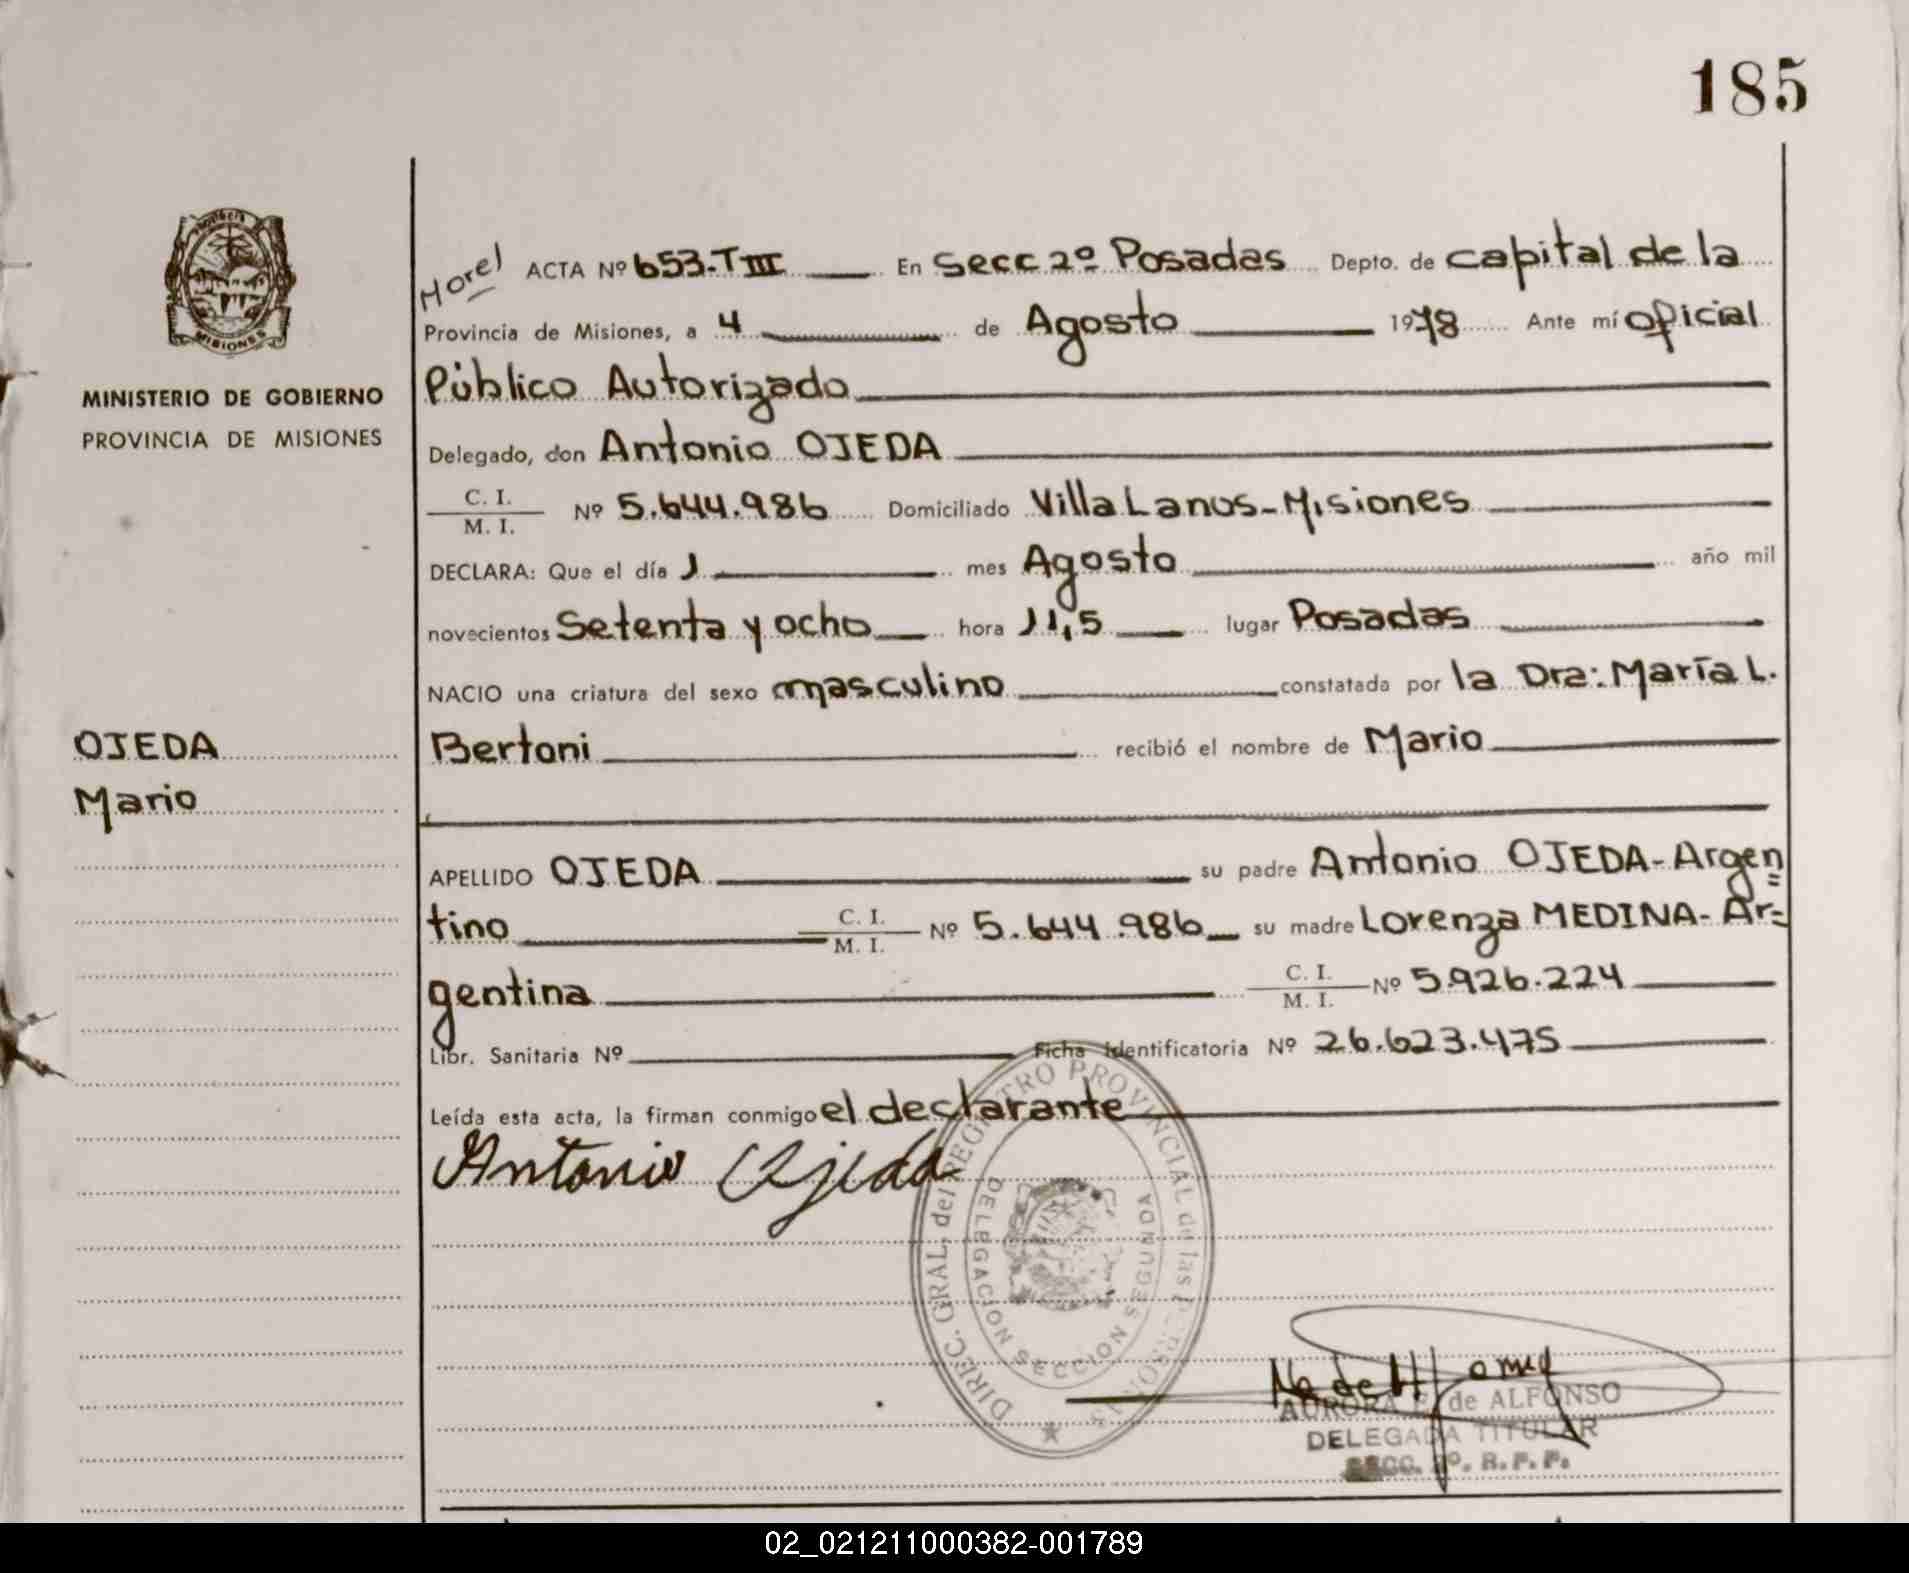 185
PROVINCIA
MISIONES
MINISTERIO DE GOBIERNO
PROVINCIA DE MISIONES
OJEDA
Mario
ACTA Nº 653.T III En Secc 2º Posadas Depto. de capital de la
Provincia de Misiones, a 4 de Agosto 1978 Ante mí oficial
Público Autorizado
Delegado, don Antonio OJEDA
C. I. / M. I. Nº 5.644.986 Domiciliado Villa Lanus-Misiones
DECLARA: Que el día 1 mes Agosto año mil
novecientos Setenta y ocho hora 11,5 lugar Posadas
NACIO una criatura del sexo masculino constatada por la Dra: María L.
Bertoni recibió el nombre de Mario
APELLIDO OJEDA su padre Antonio OJEDA-Argen=
tino C. I. / M. I. Nº 5.644.986 su madre Lorenza MEDINA-Ar=
gentina C. I. / M. I. Nº 5.926.224
Libr. Sanitaria Nº Ficha Identificatoria Nº 26.623.475
Leída esta acta, la firman conmigo el declarante
Antonio Ojeda
DIREC. GRAL. del REGISTRO PROVINCIAL de las PERSONAS
DELEGACION SECCION SEGUNDA
AURORA de ALFONSO
DELEGADA TITULAR
SECC. 2º. R. P. P.
02_021211000382-001789